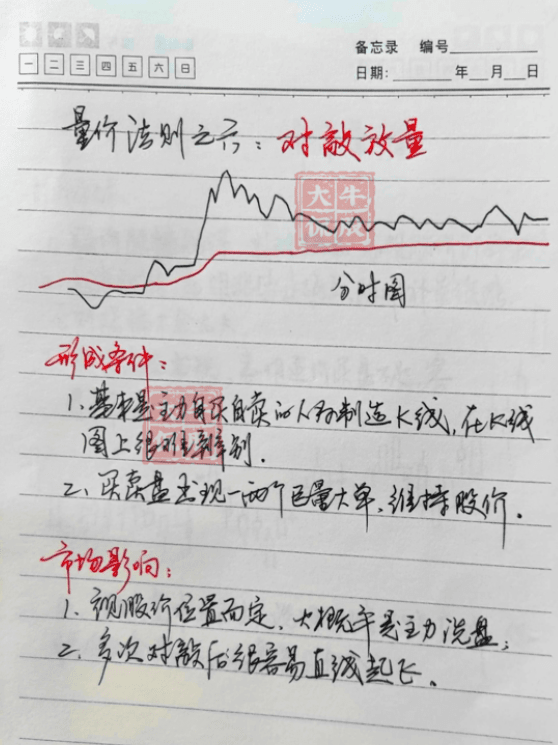 备忘录 编号
一 二 三 四 五 六 日
日期: 年 月 日
量价法则之六: 对敲放量
大牛
分时图
形成条件:
1. 基本是主力自买自卖的人为制造K线, 在K线
图上很难辨别.
2. 买卖盘出现一两个巨量大单, 维持股价.
市场影响:
1. 视股价位置而定, 大概率是主力洗盘;
2. 多次对敲后很容易直线起飞.